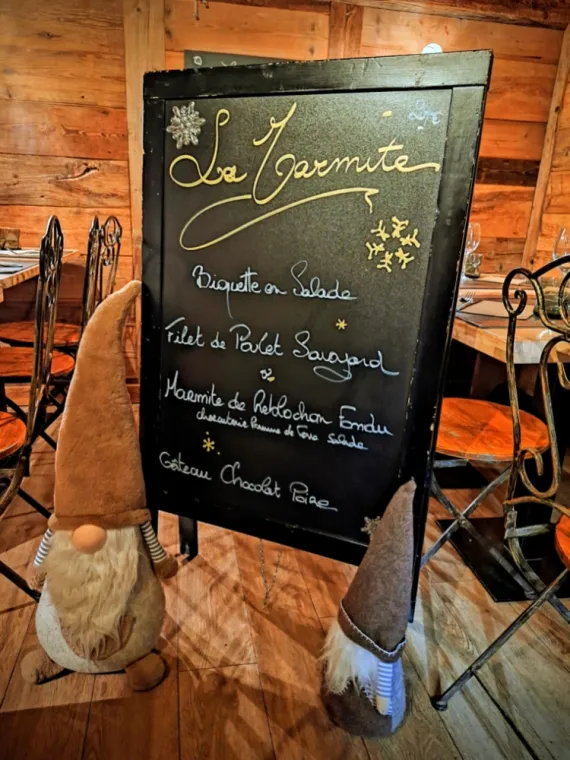 La Marmite
Biquette en Salade
Filet de Poulet Savoyard
Marmite de Reblochon Fondu
charcuterie Pomme de Terre Salade
Gâteau Chocolat Poire